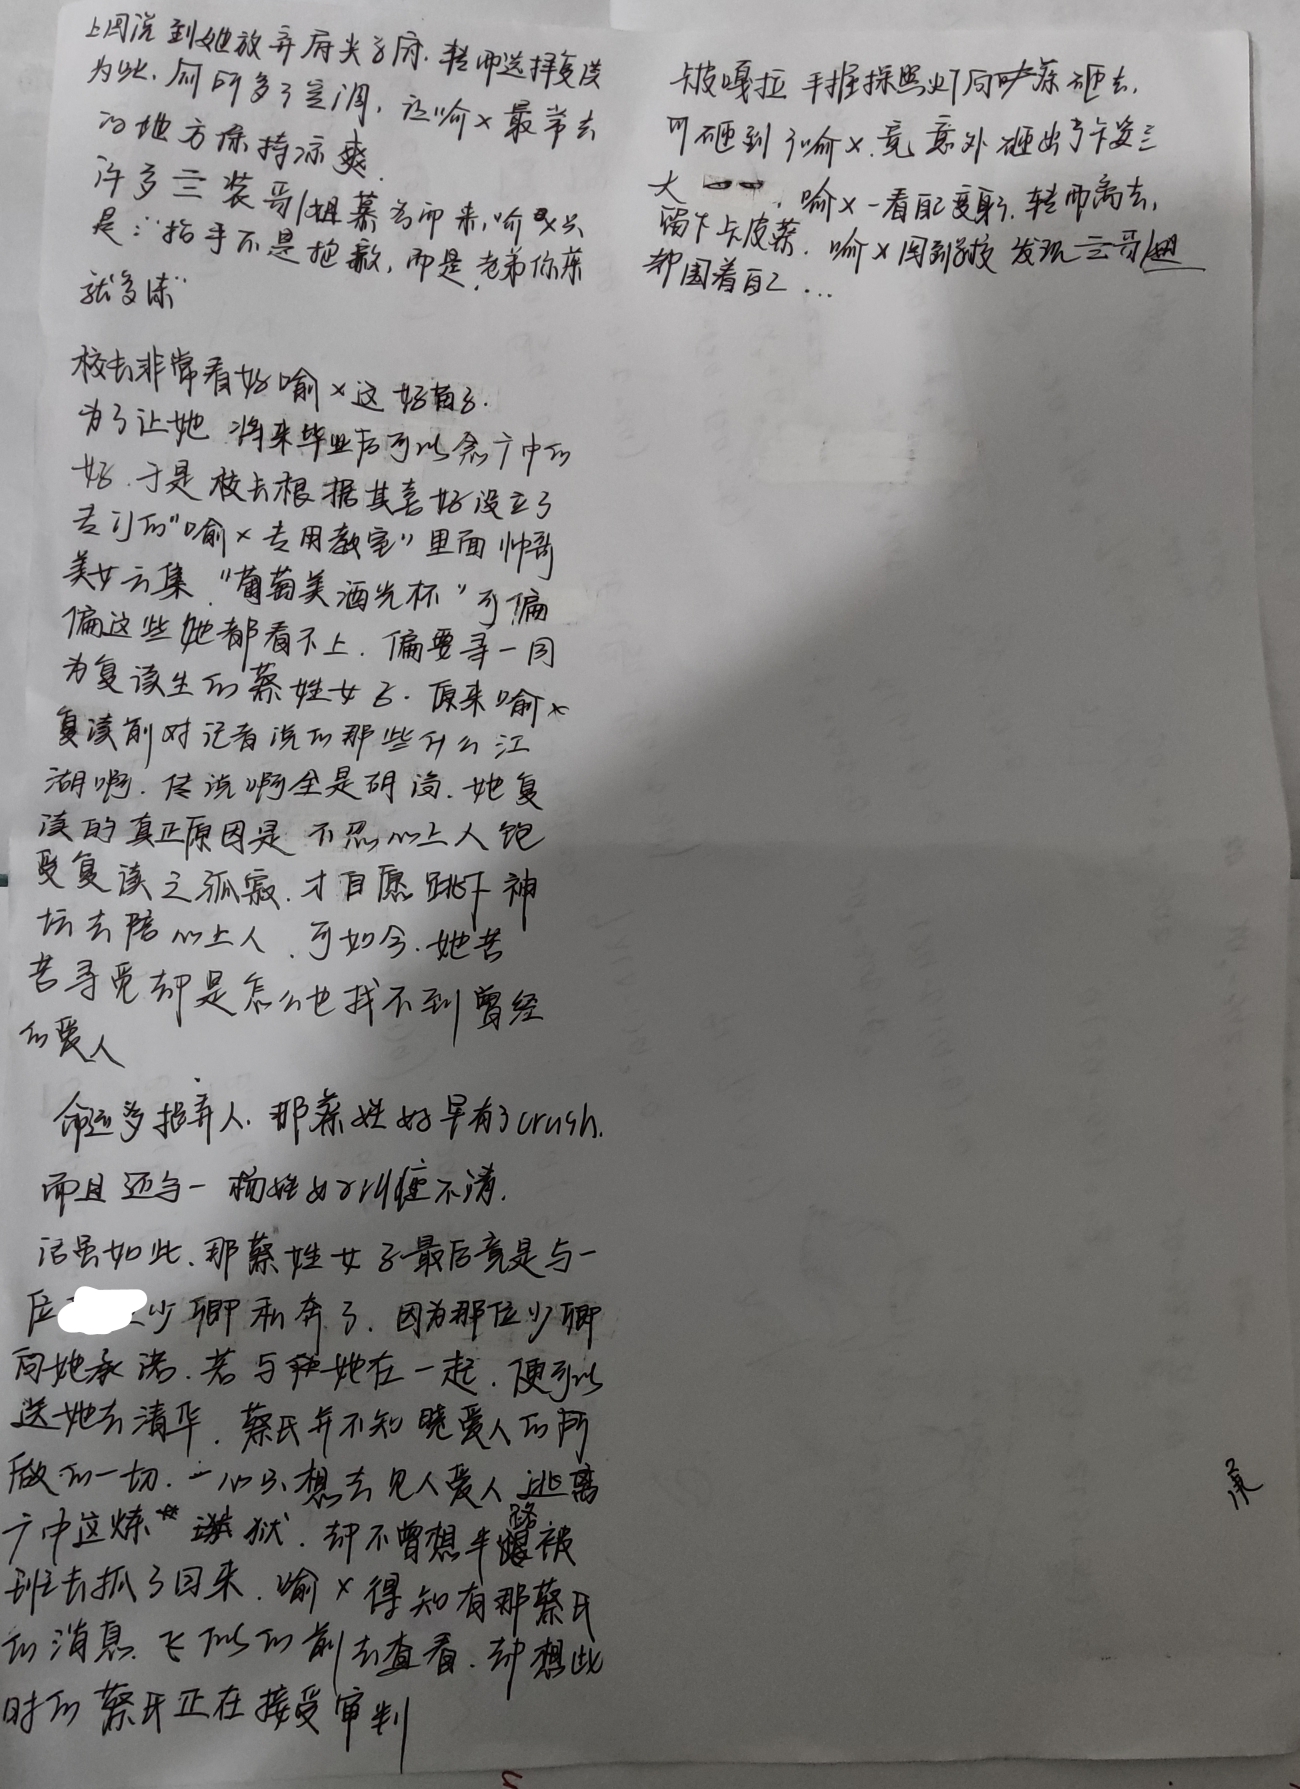 上回说到她放弃府尖学府.转而选择复读
为此.厕所多了空调,这喻×最常去
的地方保持凉爽.
许多三装哥/姐慕名而来,喻×只
是:"指手不是抱歉,而是,老弟你菜
就多练"
校长非常看好喻×这好苗子.
为了让她 将来毕业后可以念广中的
好.于是校长根据其喜好设立了
专门的"喻×专用教室"里面帅哥
美女云集."葡萄美酒光杯"可偏
偏这些她都看不上.偏要寻一同
为复读生的蔡姓女子.原来喻×
复读前对记者说的那些什么江
湖啊.传说啊全是胡诌.她复
读的真正原因是 不忍心上人饱
受复读之孤寂.才自愿跳下神
坛去陪心上人.可如今.她苦
苦寻觅却是怎么也找不到曾经
的爱人
命运多捉弃人.那蔡姓女子早有了crush.
而且还与一杨姓女子纠缠不清.
话虽如此.那蔡姓女子最后竟是与一
位 少卿私奔了.因为那位少卿
向她承诺.若与她在一起.便可以
送她去清华.蔡氏并不知晓爱人的所
做的一切.一心只想去见人爱人逃离
广中这炼狱.却不曾想半路被
班主抓了回来.喻×得知有那蔡氏
的消息.飞似的前去查看.却想此
时的蔡氏正在接受审判
卡皮嘎拉 手握探照灯向蔡砸去,
可砸到了喻×.竟意外砸出了卡姿兰
大 .喻×一看自己变身了.转而离去,
留下卡皮蔡.喻×回到学校 发现三哥/姐
都围着自己...